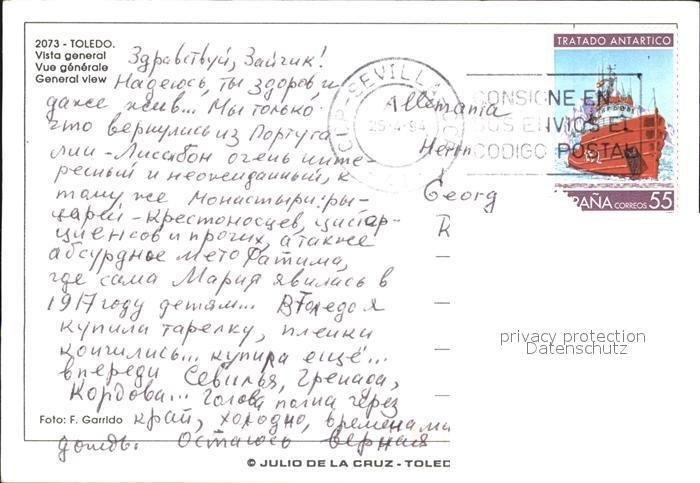 2073 - TOLEDO.
Vista general
Vue générale
General view
Здравствуй, Зайчик!
Надеюсь, ты здоров, и
даже жив... Мы только
что вернулись из Португа
лии - Лиссабон очень инте-
ресный и неожиданный, к
тому же монастыри: ры-
царей - крестоносцев, цистер-
циенсов и прочих, а также
абсурдное место Фатима,
где сама Мария явилась в
1917 году детям... В Толедо я
купила тарелку, пленки
кончились...
впереди Севилья, Гренада,
Кордова... Голова полна через
край, холодно, временами
дождь. Остаюсь верная
Foto: F. Garrido
© JULIO DE LA CRUZ - TOLED
SEVILLA
25-4-94
CONSIGNE EN
SUS ENVIOS EL
CODIGO POSTAL
TRATADO ANTARTICO
ESPAÑA CORREOS 55
Allemania
Herrn
Georg
R
privacy protection
Datenschutz